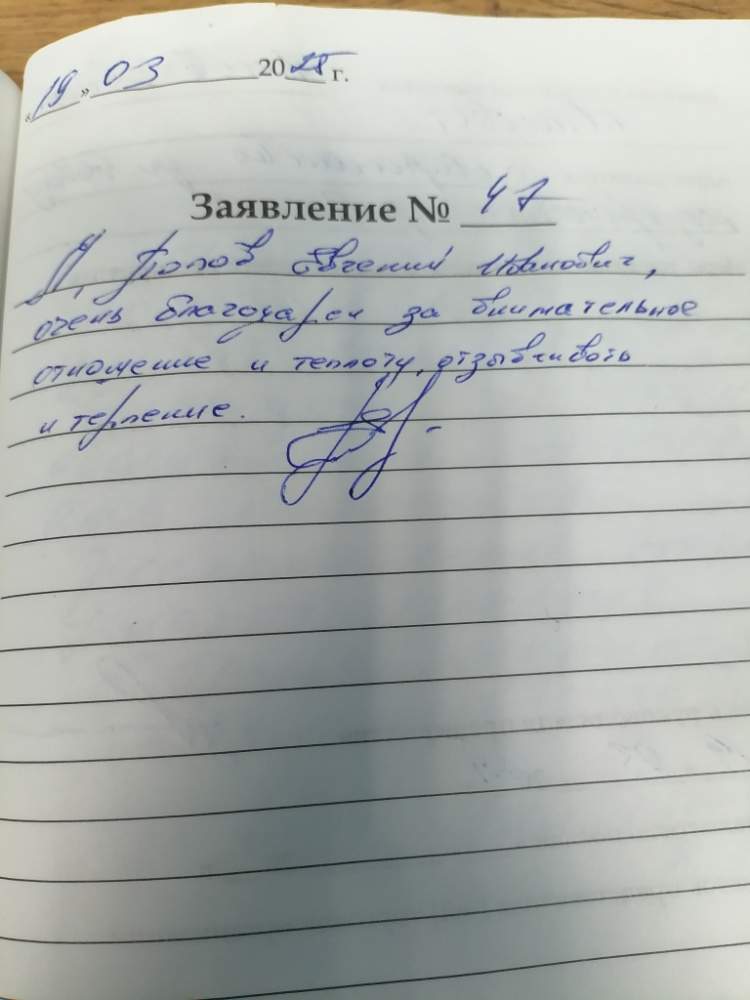 «19» 03 2025 г.
Заявление № 47
Я, Попов Евгений Иванович,
очень благодарен за внимательное
отношение и теплоту, отзывчивость
и терпение.